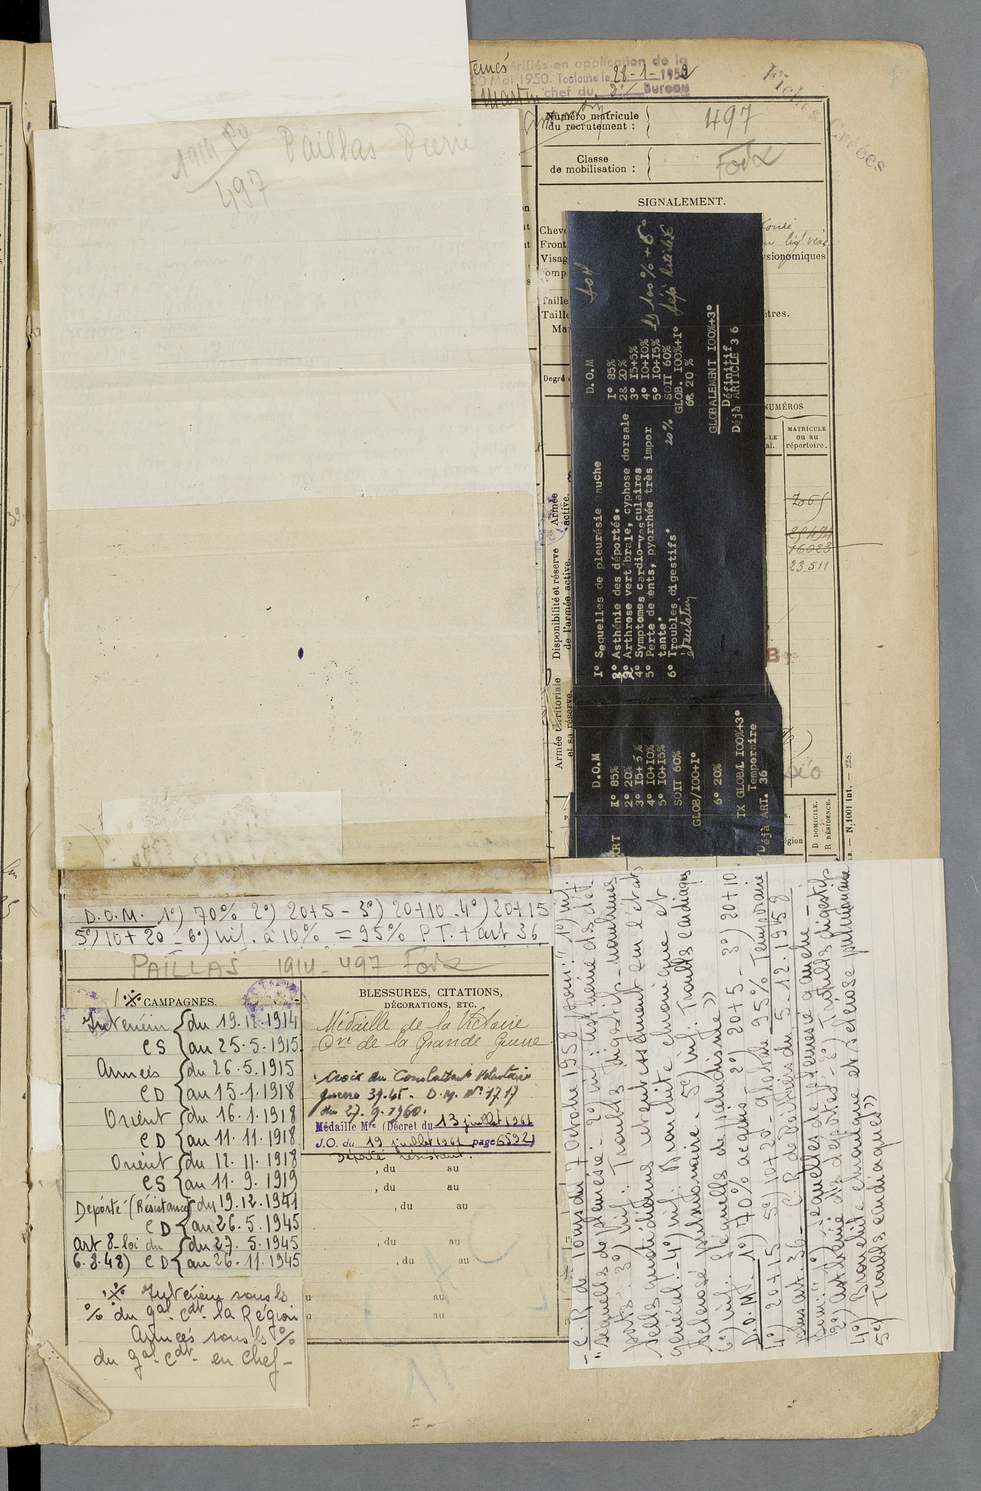 vérifiés en application de la
Mai 1950. Toulouse le 28-1-1959
chef du 2e/ Bureau
Fiches Créées
1914
497
Paillas
Numéro matricule
du recrutement :
497
Classe
de mobilisation :
Foix
SIGNALEMENT.
Front
Visag
sionomiques
Taille
Taille
ètres.
Degré
NUMÉROS
MATRICULE
ou au
répertoire.
23.511
Armée
active.
Disponibilité et réserve
de l'armée active.
Armée territoriale
et sa réserve.
D. DOMICILE.
R. RÉSIDENCE.
N. 1001 int. — 228.
D.O.M
1° Sequelles de pleurésie gauche
1° 85%
2° Asthénie des déportés.
2& 20%
3° Arthrose vertébrale, cyphose dorsale
3° I5+5%
4° Symptomes cardio-vasculaires
4° I0+I0%
5° Perte de dents, pyorrhée très impor
tante.
5° I0+I5%
SOIT 60%
GLOB. I00%+I°
6° Troubles digestifs
20%
6& 20 %
GLOBALEMENT I00%+3°
Définitif
Déjà ARTICLE 36
D.O.M
1° 85%
2° 20%
3° I5+5%
4° I0+I0%
5° I0+I5%
SOIT 60%
GLOB/I00+I°
6° 20%
IX GLOBAL I00%+3°
Temporaire
Déjà ART. 36
D.O.M. 1°) 70% 2°) 20+5 - 3°) 20+10 4°) 20+15
5°) 10+20 - 6°) inf. à 10% = 95% P.T. + art 36
PAILLAS 1914-497 Foix
CAMPAGNES.
Intérieur { du 19.12.1914
CS { au 25.5.1915
Armées { du 26.5.1915
CD { au 15.1.1918
Orient { du 16.1.1918
CD { au 11.11.1918
Orient { du 12.11.1918
CS { au 11.9.1919
Déporté (Résistance) { du 19.12.1941
CD { au 26.5.1945
Art 8-loi du { du 27.5.1945
6.8.48) CD { au 26.11.1945
Intérieur sous le
% du gal cdt la Région
Armées sous le %
du gal cdt en chef -
BLESSURES, CITATIONS,
DÉCORATIONS, ETC.
Médaille de la Victoire
Cve de la Grande Guerre
Croix du Combattant Volontaire
guerre 39.45. D.M. N° 1717
du 27.9.1960.
Médaille Mre (Décret du 13 juillet 1961
J.O. du 19 juillet 1961 page 6592)
Déporté Résistant.
, du au
, du au
, du au
, du au
, du au
au
au
- C.R de Toulouse du 7 octobre 1958 pour: 1°) inf.
"Séquelles de pleurésie - 2°) inf: Asthénie des dé-
portés - 3°) inf: Troubles digestifs - nombreuses
selles quotidiennes retentissement sur l'état
général - 4°) inf: Bronchite chronique et
sclérose pulmonaire - 5°) inf: Troubles cardiaques
6°) inf: Séquelles de paludisme »
D.O.M. 1°) 70% acquis 2°) 20+5 - 3°) 20+10
4°) 20+15 5°) 10+20 - globale 95% Temporaire
plus art. 36 - C.R de du 5.12.1958
pour: 1°) Séquelles de pleurésie gauche -
2°) asthénie des déportés - 3°) Troubles digestifs
4°) Bronchite chronique et sclérose pulmonaire
5°) Troubles cardiaques »